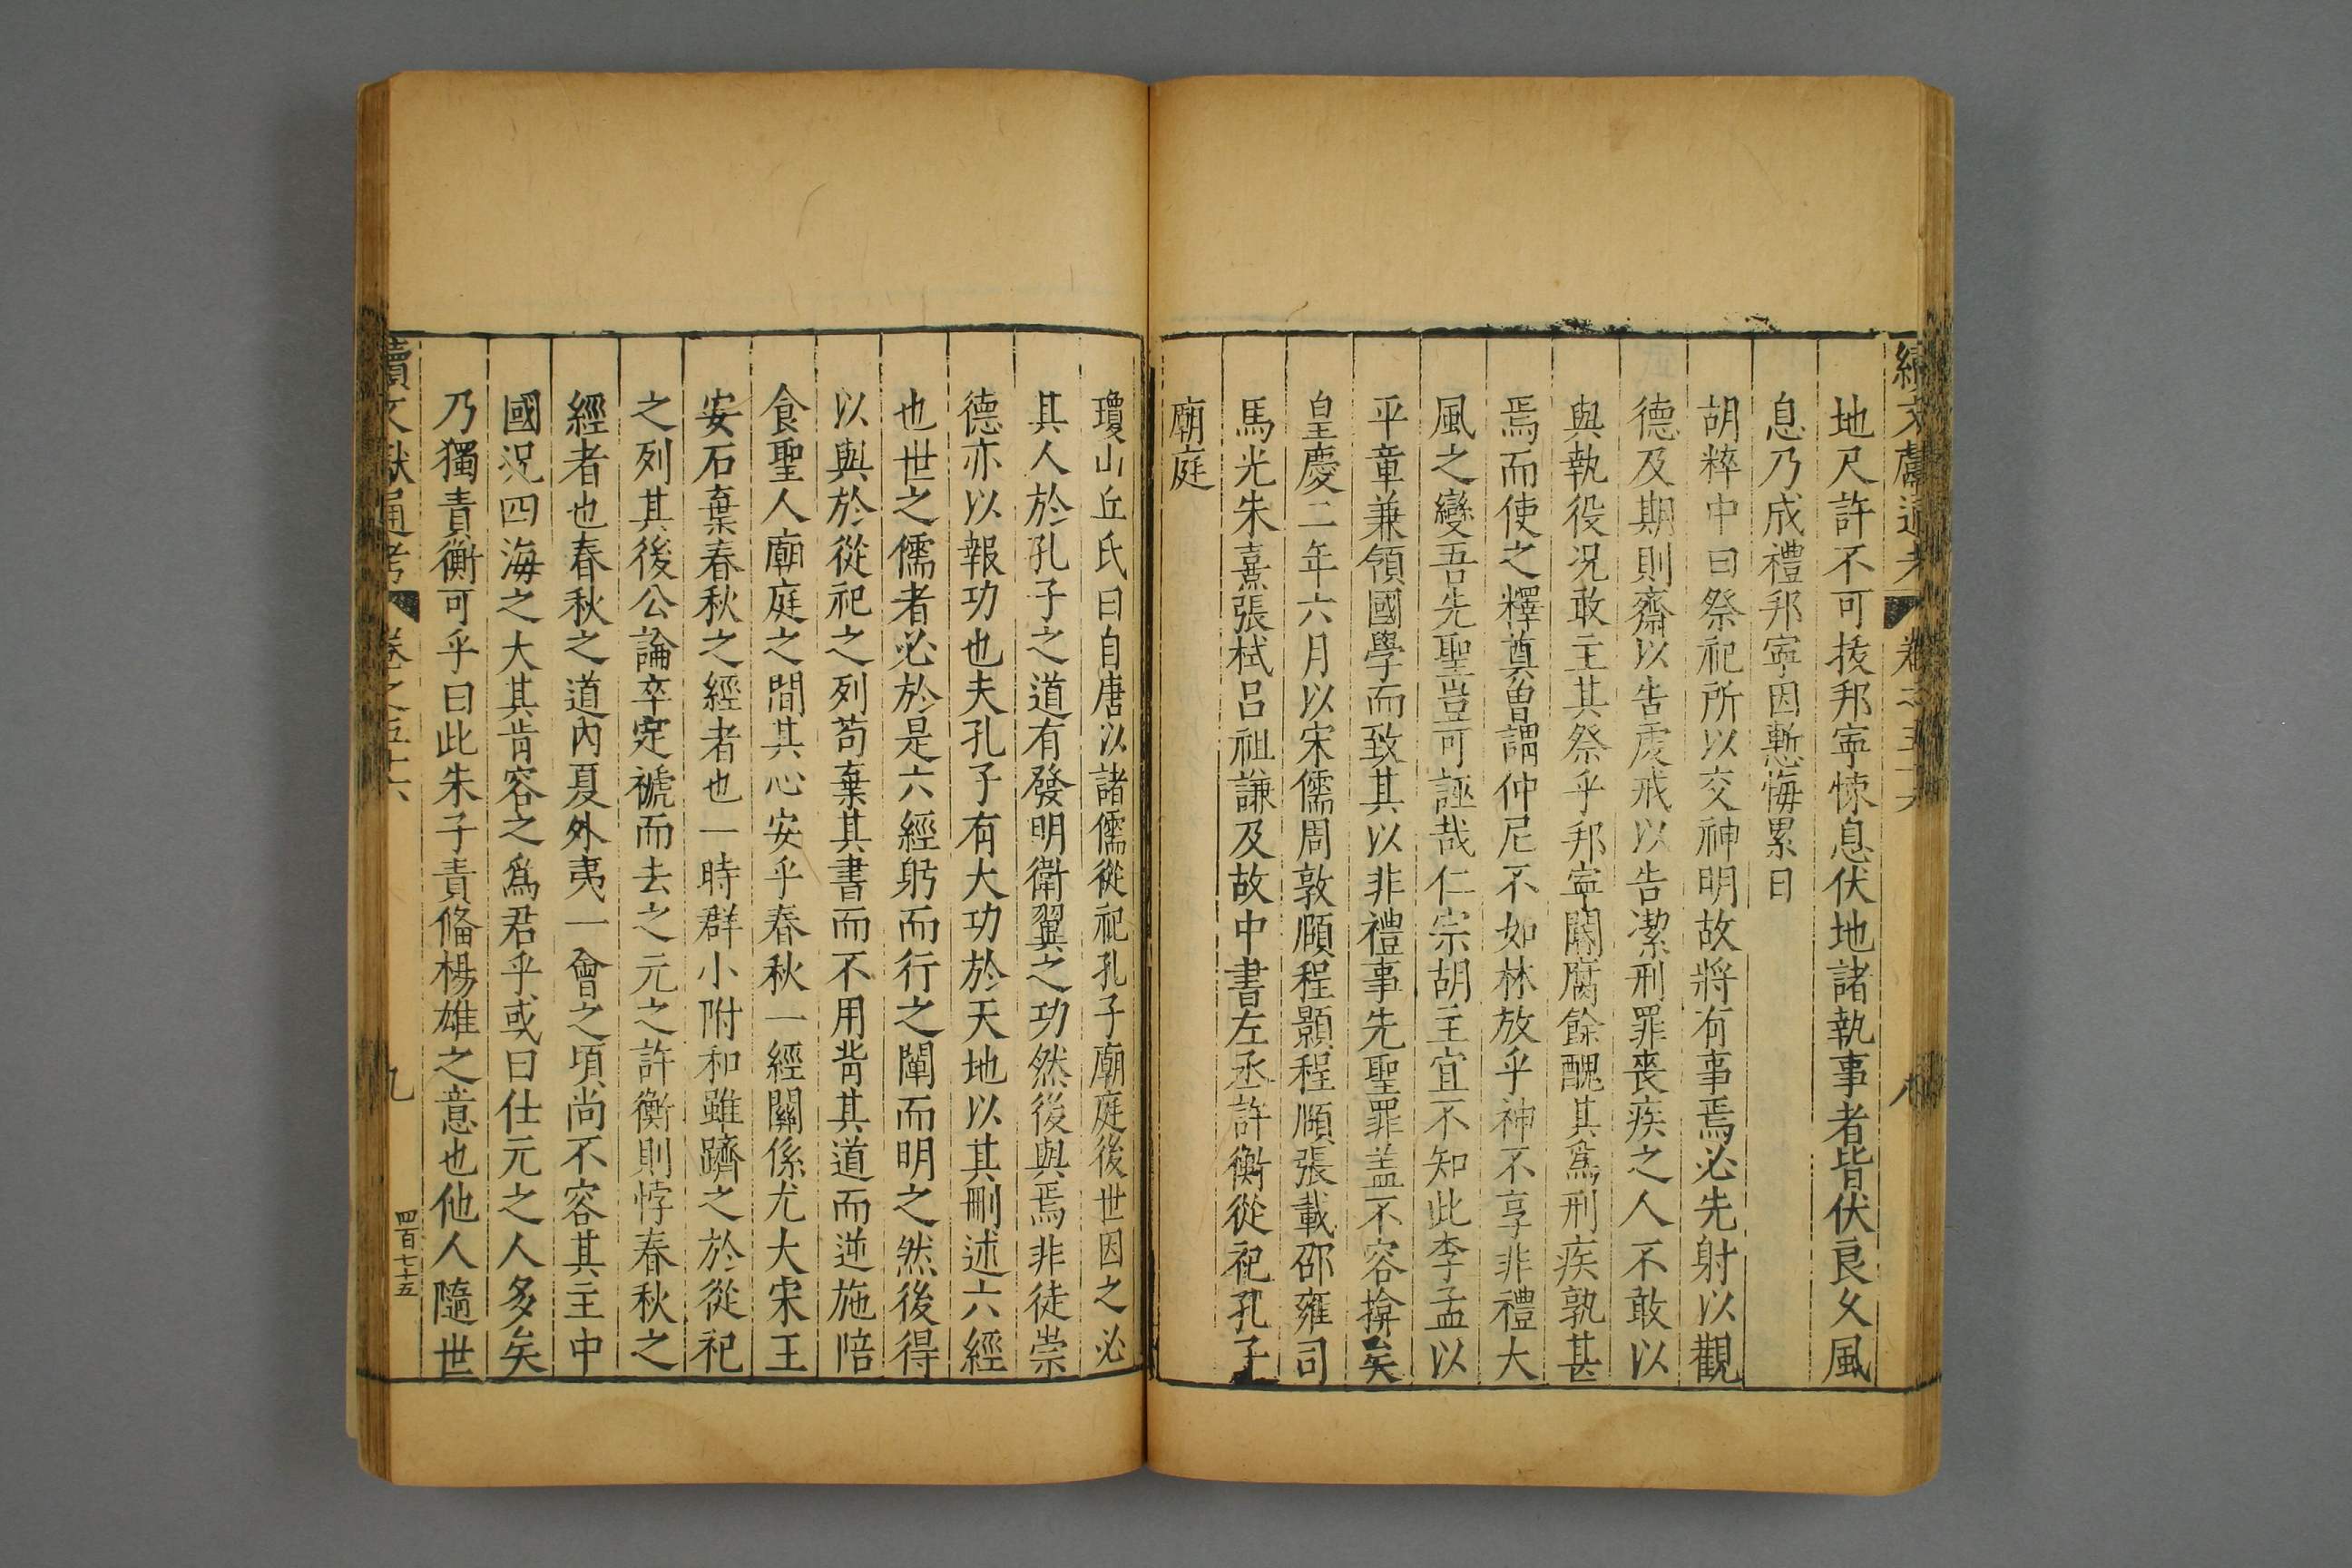 續文獻通考 卷之五十六 八
地尺許不可拔邦寧悚息伏地諸執事者皆伏良乆風
息乃成禮邦寧因慙悔累日
胡粹中曰祭祀所以交神明故將有事焉必先射以觀
德及期則齋以告虔戒以告潔刑罪喪疾之人不敢以
與執役况敢主其祭乎邦寧閹腐餘醜其爲刑疾孰甚
焉而使之釋奠曽謂仲尼不如林放乎神不享非禮大
風之變吾先聖豈可誣哉仁宗胡主宜不知此李孟以
平章兼領國學而致其以非禮事先聖罪盖不容揜矣
皇慶二年六月以宋儒周敦頤程顥程頤張載邵雍司
馬光朱熹張栻呂祖謙及故中書左丞許衡從祀孔子
廟庭
瓊山丘氏曰自唐以諸儒從祀孔子廟庭後世因之必
其人於孔子之道有發明衛翼之功然後與焉非徒崇
德亦以報功也夫孔子有大功於天地以其刪述六經
也世之儒者必於是六經躬而行之闡而明之然後得
以與於從祀之列苟棄其書而不用背其道而逆施陪
食聖人廟庭之間其心安乎春秋一經關係尤大宋王
安石棄春秋之經者也一時群小附和雖躋之於從祀
之列其後公論卒定褫而去之元之許衡則悖春秋之
經者也春秋之道內夏外夷一會之頃尚不容其主中
國况四海之大其肯容之爲君乎或曰仕元之人多矣
乃獨責衡可乎曰此朱子責偹楊雄之意也他人隨世
續文獻通考 卷之五十六 九 四百七十五